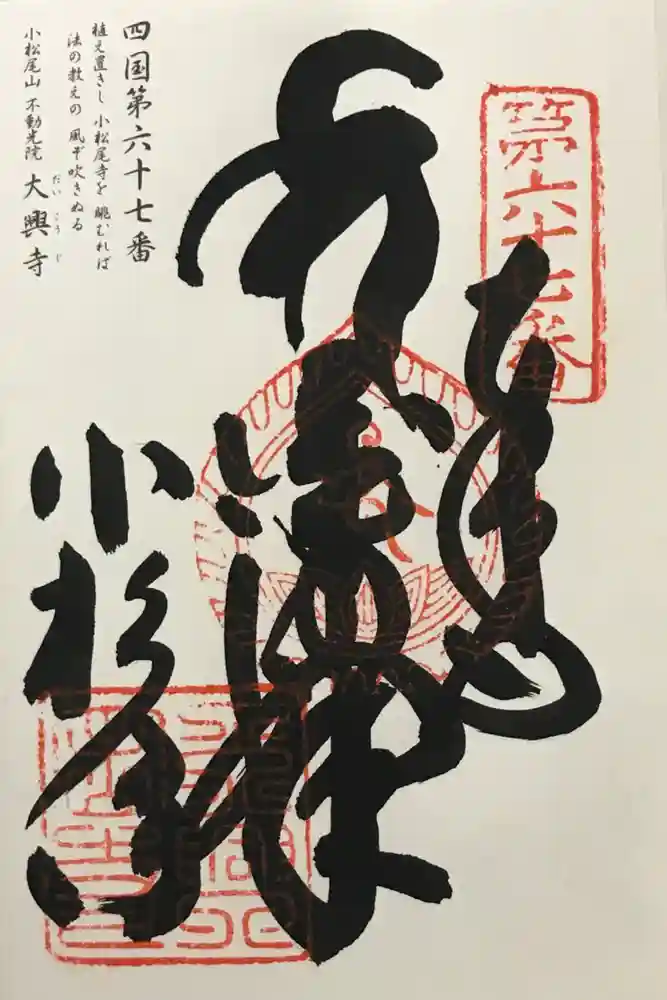 第六十七番
四国第六十七番
植え置きし 小松尾寺を 眺むれば
法の教えの 風ぞ吹きぬる
小松尾山 不動光院 大興寺
だいこうじ
奉納
小松尾寺